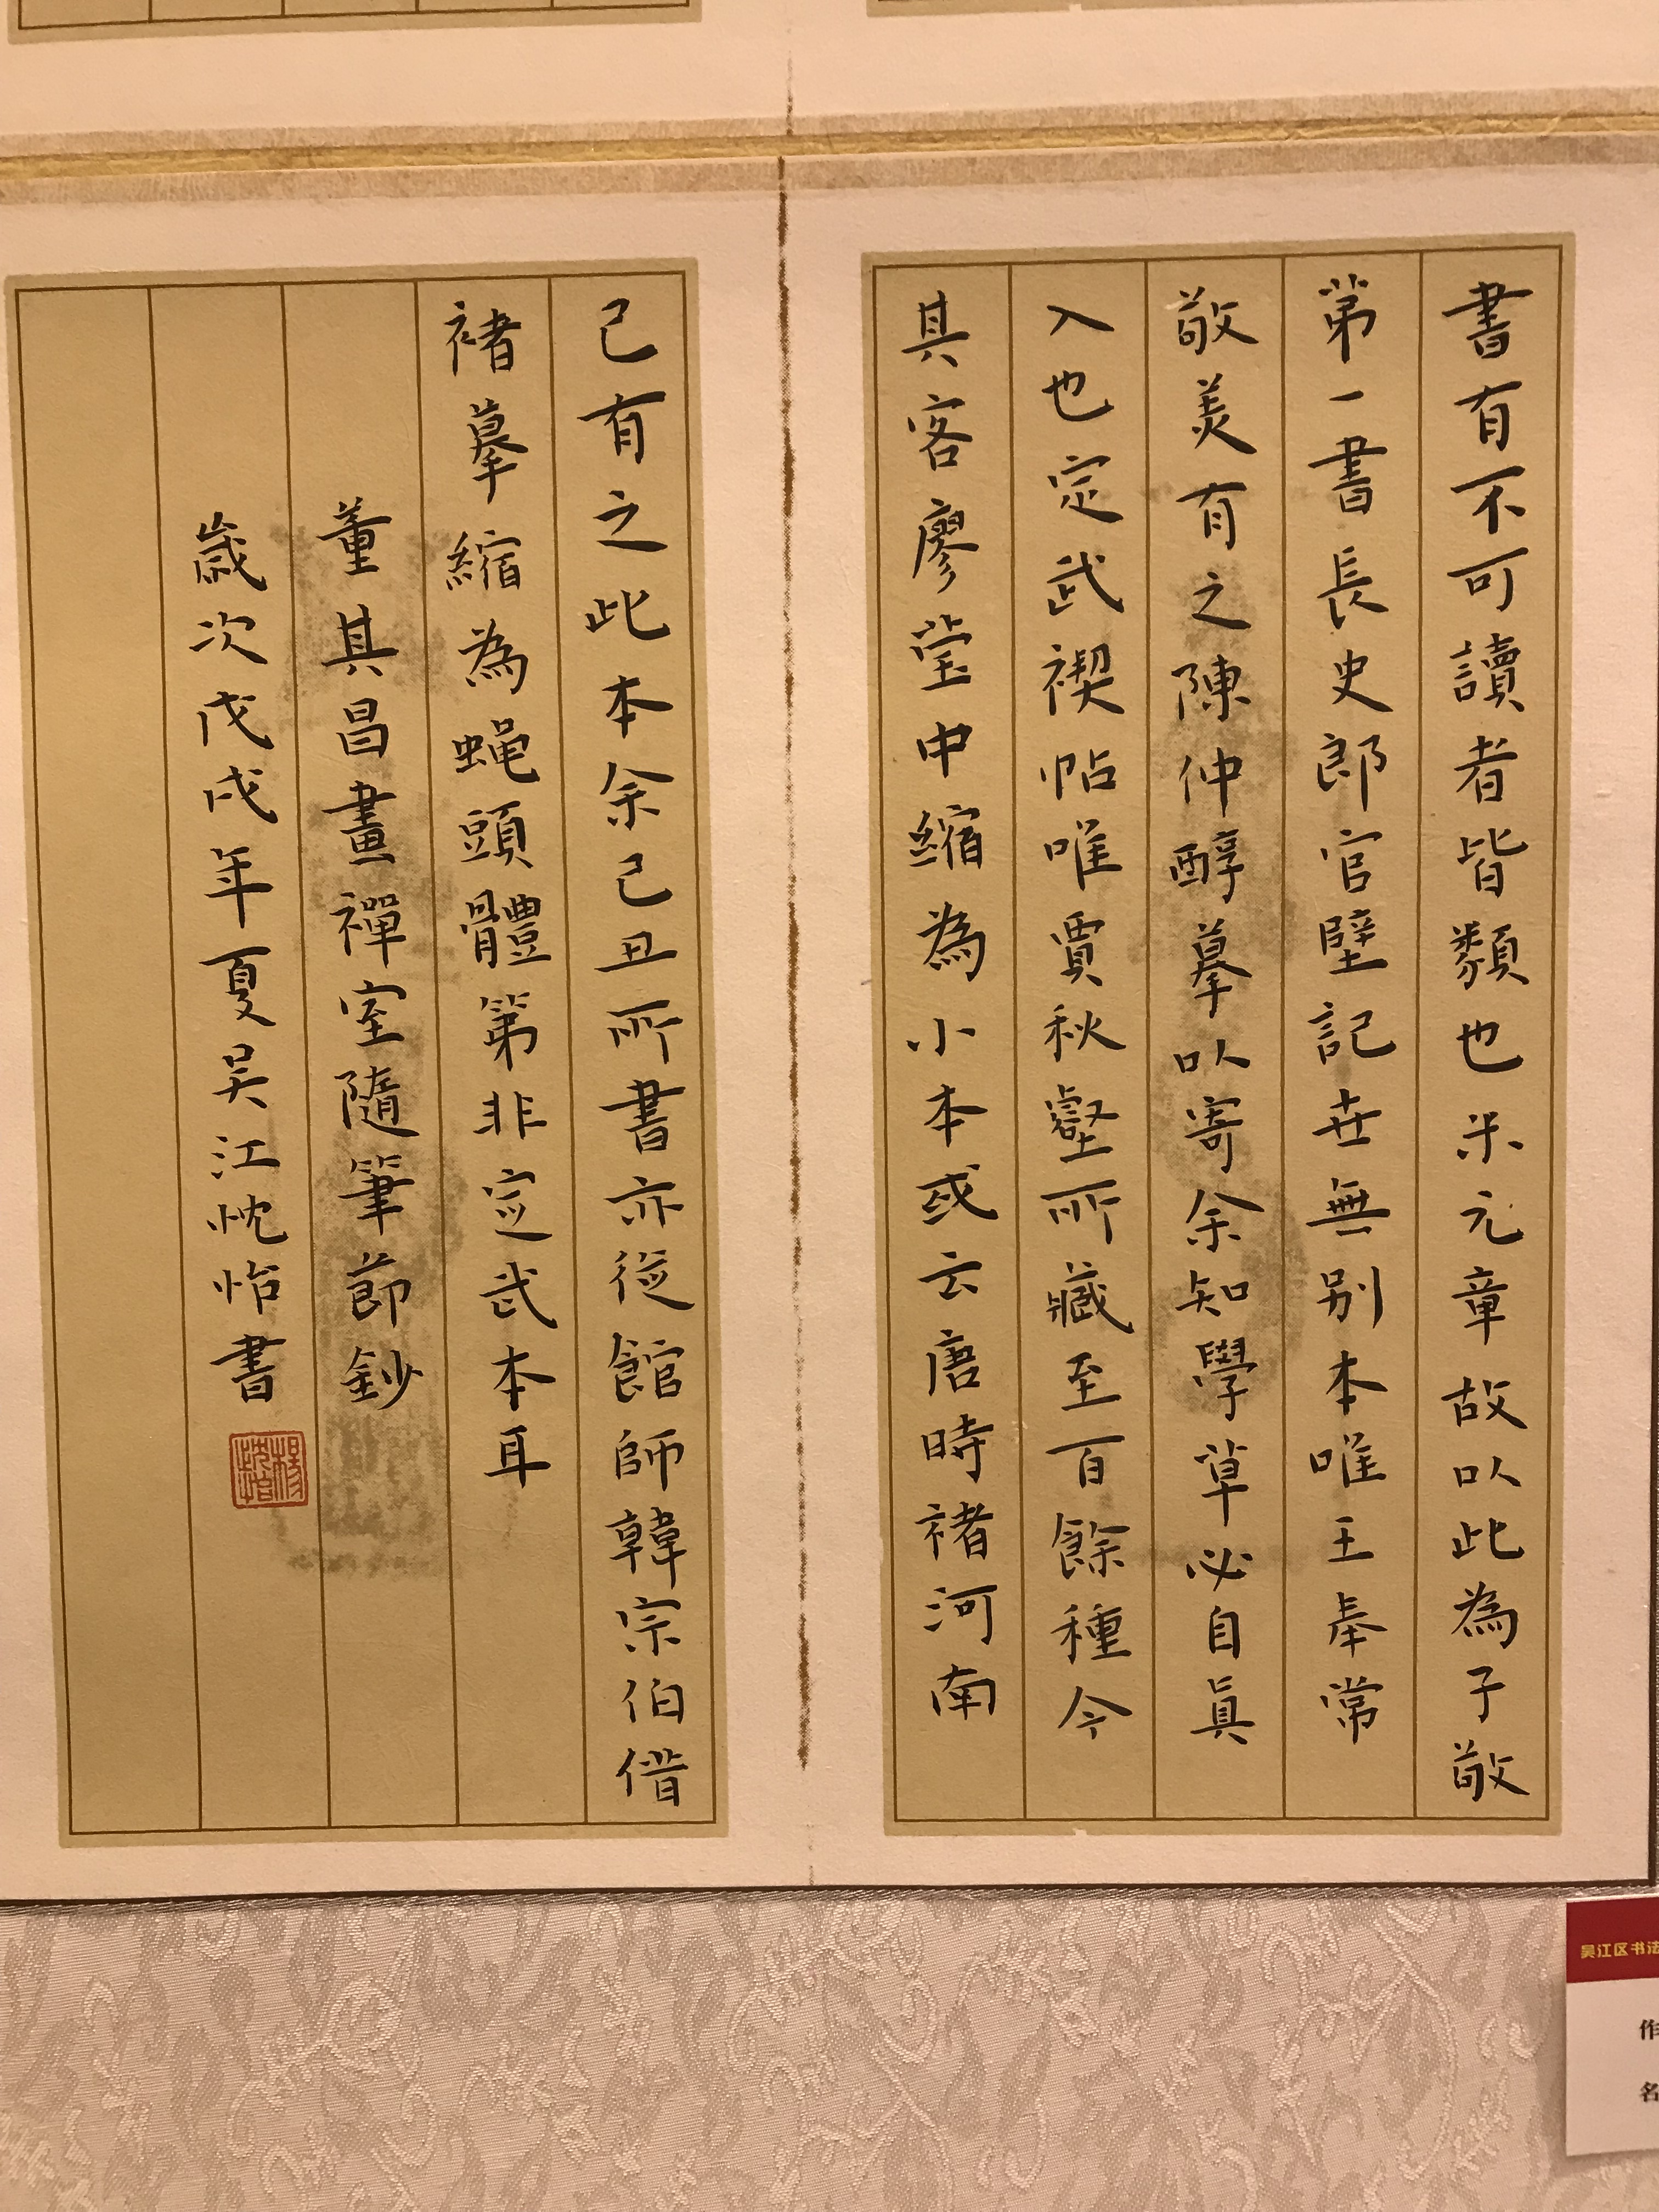 書有不可讀者皆類也米元章故以此為子敬
第一書長史郎官壁記世無別本唯王奉常
敬美有之陳仲醇摹以寄余知學草必自真
入也定武禊帖唯賈秋壑所藏至百餘種今
其客廖瑩中縮為小本或云唐時褚河南
已有之此本余己丑所書亦從館師韓宗伯借
褚摹縮為蝇頭體第非定武本耳
董其昌畫禪室隨筆節鈔
歲次戊戌年夏吴江忱怡書
吴江区书法
作
名